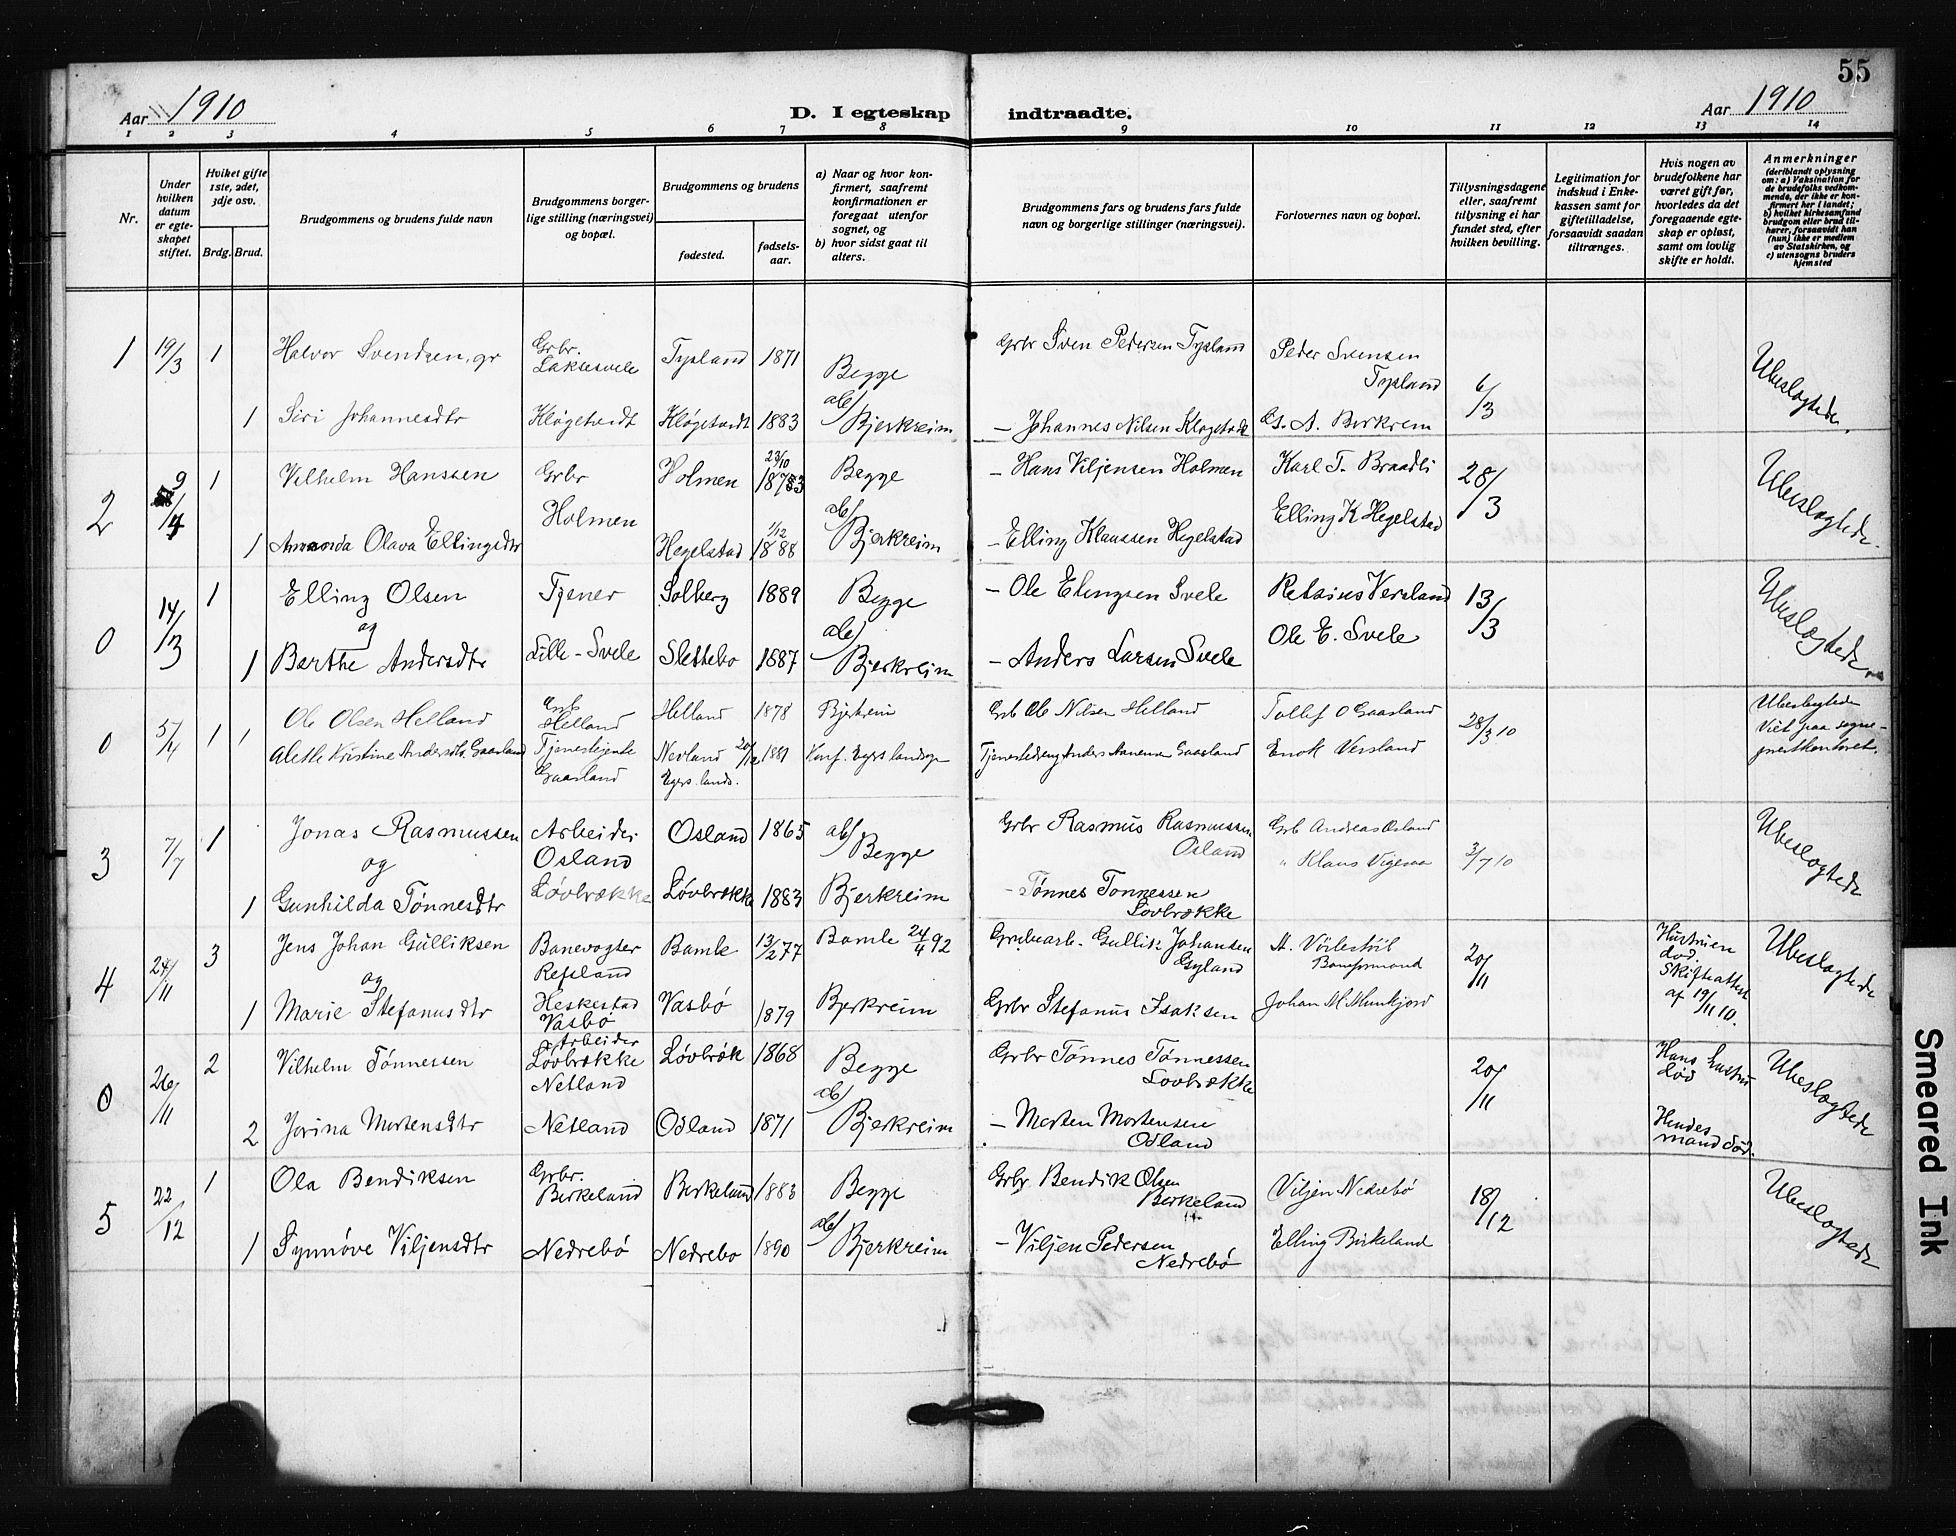 55
Aar 1910
D. I egteskap indtraadte.
Aar 1910
1 2 3 4 5 6 7 8 9 10 11 12 13 14
Nr.
Under hvilken datum er egteskapet stiftet.
Hvilket gifte 1ste, 2det, 3dje osv.
Brdg. Brud.
Brudgommens og brudens fulde navn
Brudgommens borgerlige stilling (næringsvei) og bopæl.
Brudgommens og brudens
fødested.
fødselsaar.
a) Naar og hvor konfirmert, saafremt konfirmationen er foregaat utenfor sognet, og
b) hvor sidst gaat til alters.
Brudgommens fars og brudens fars fulde navn og borgerlige stillinger (næringsvei).
Forlovernes navn og bopæl.
Tillysningsdagene eller, saafremt tillysning ei har fundet sted, efter hvilken bevilling.
Legitimation for indskud i Enkekassen samt for giftetilladelse, forsaavidt saadan tiltrænges.
Hvis nogen av brudefolkene har været gift før, hvorledes da det foregaaende egteskap er opløst, samt om lovlig skifte er holdt.
Anmerkninger
(deriblandt oplysning om: a) Vaksination for de brudefolks vedkommende, der ikke er konfirmert her i landet; b) hvilket kirkesamfund brudgom eller brud tilhører, forsaavidt han (hun) ikke er medlem av Statskirken, og c) utensogns bruders hjemsted
1 19/3 1 Halvor Svendsen, gr Grbr. Laksesvele Tysland 1871 Begge Grbr Sven Pedersen Tysland Peder Svensen Tysland 6/3 Ubeslegtede.
1 Siri Johannesdtr Kløgetvedt Kløgetvedt 1883 ab/ Bjerkreim — Johannes Nilsen Kløgetvedt G. A. Birkrem
2 9/4 1 Vilhelm Hanssen Grbr Holmen Holmen 23/10 1883 Begge — Hans Viljensen Holmen Karl T. Braadli 28/3 Ubeslegtede.
1 Amanda Olava Ellingsdtr Hegelstad 1/12 1888 ab/ Bjerkreim — Elling Klaussen Hegelstad Elling K Hegelstad
0 14/3 1 Elling Olsen Tjener Solberg 1889 Begge — Ole Elingsen Svele Retsius Versland 13/3 Ubeslegtede
og
1 Berthe Andersdtr Lille-Svele Slettebo 1887 ab/ Bjerkreim — Anders Larsen Svele Ole E. Svele
0 5/4 1 Ole Olsen Helland Grb Helland Helland 1878 Bjerkreim Grb Ole Nilsen Helland Tollef O Gaasland 28/3 10 Ubeslegtede Viet paa sogneprestkontoret.
1 Alette Kristine Andersdtr. Gaasland Tjenestejente Gaasland Nevland Egers. lands. 1889 Konf. Egers landsogn Anders Gaasland Enok Versland
3 7/7 1 Jonas Rasmussen Arbeider Osland Osland 1865 ab/ Begge Grbr Rasmus Rasmussen Osland Grb Andreas Osland 3/7 10 Ubeslegtede
og
1 Gunhilda Tönnesdtr Løvbrække Løvbrække 1883 Bjerkreim — Tönnes Tonnessen Lovbrække " Klaus Vigesaa
4 24/11 3 Jens Johan Gulliksen Banevogter Refsland Bamle 13/2 77 Bamle 24/4 92 Grubearb. Gullik Johansen Gyland 20/11 Hustruen død. Skifteattest af 19/11 10. Ubeslegtede
og
1 Marie Stefanusdtr Heskestad Vasbø Vasbö 1879 Bjerkreim Grbr Stefanus Isaksen Johan M. Munkjord
0 26/11 2 Vilhelm Tönnessen Arbeider Løvbrække Netland Løvbræk 1868 Begge Grbr Tönnes Tönnessen Lovbrække 20/11 Hans hustru død Ubeslegtede
2 Jorina Mortensdtr Netland Odland 1871 ab/ Bjerkreim — Morten Mortensen Odland Hendes mand død.
5 22/12 1 Ola Bendiksen Grbr. Birkeland Birkeland 1883 Begge Grbr Bendik Olsen Birkeland Viljen Nedrebö 18/12 Ubeslegtede
1 Synnöve Viljensdtr Nedrebö Nedrebo 1890 ab/ Bjerkreim — Viljen Pedersen Nedrebö Elling Birkeland
Smeared Ink